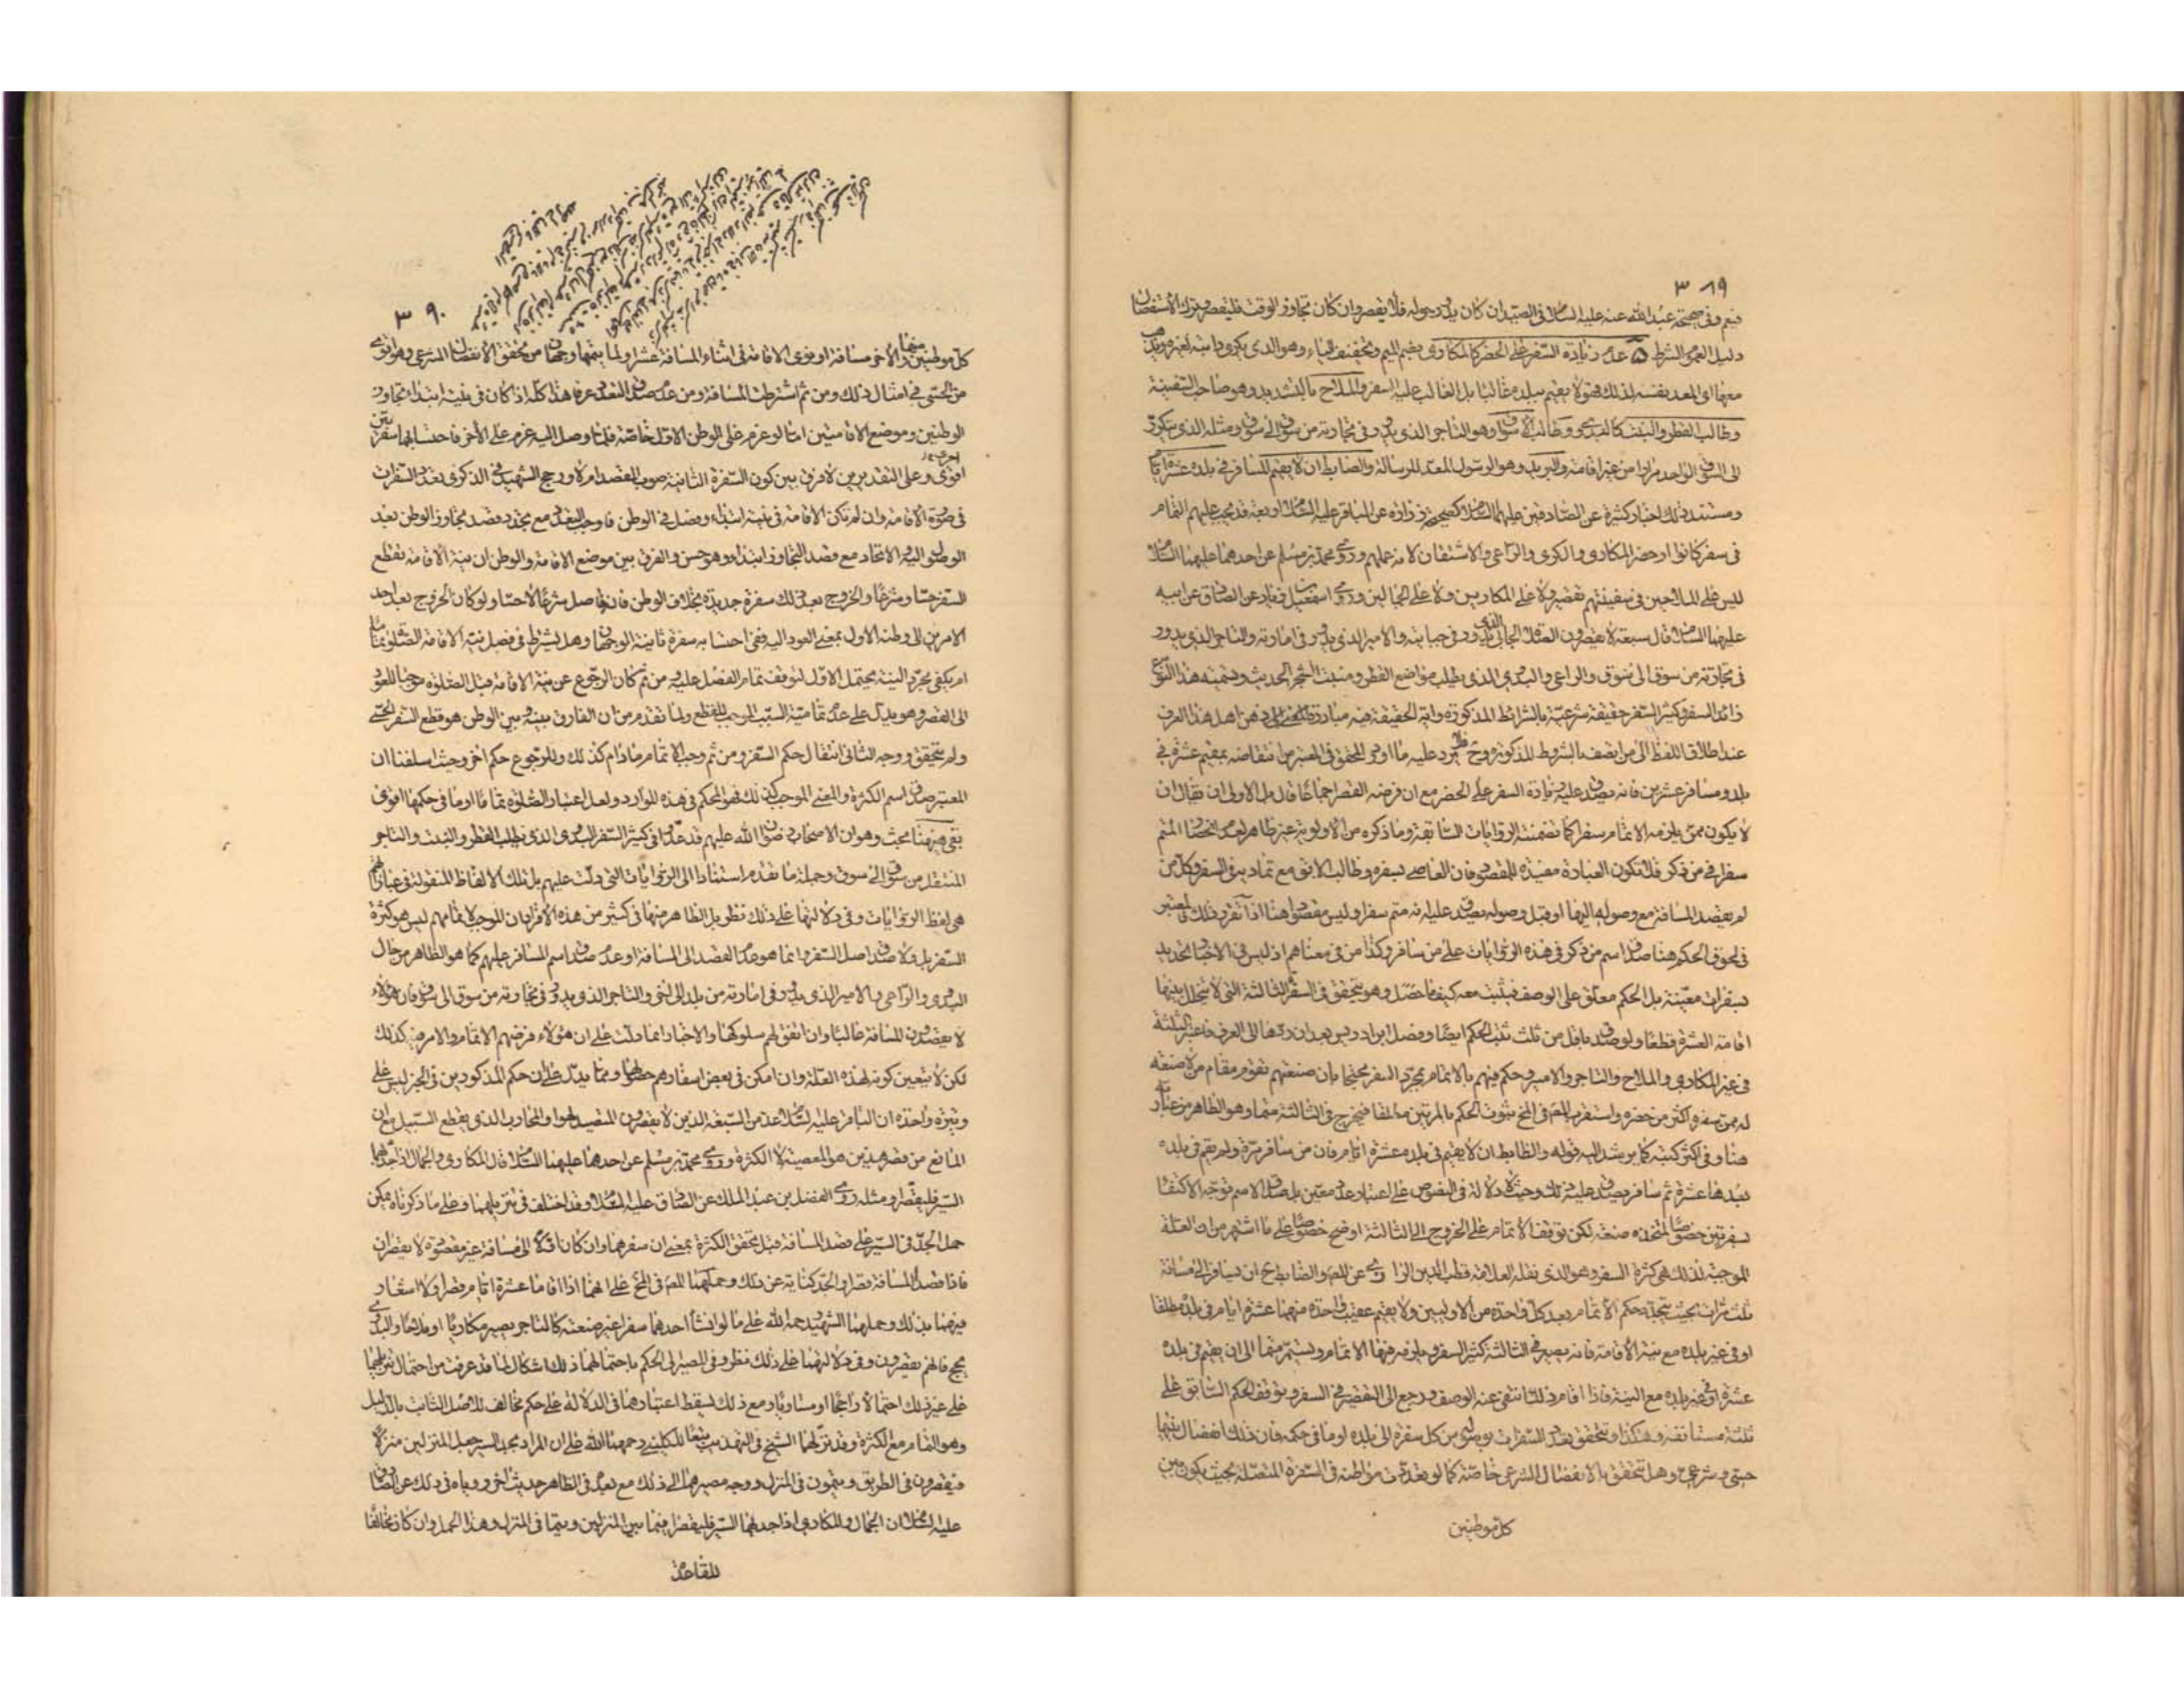 ٣٨٩
نعم وفى صحيحة عبد الله عنه عليه السلام فى الصيد ان كان يدور حوله فلا يقصر وان كان تجاوز الوقت فليقصر وترك الاستفصال
دليل العموم الشرط ۵ عدم زيادة السفر على الحضر كالمكارى بضم الميم وتخفيف الياء وهو الذى يكرى دابته لغيره ويذهب
معها اى المعد نفسه لذلك فهو لا يقيم ببلده غالبا بل الغالب عليه السفر والملاح بالتشديد وهو صاحب السفينة
وطالب القطر والنبت كالبدوى وطالب الاسواق وهو التاجر الذى يدور فى تجارته من سوق الى سوق ومثله الذى يتكرر
الى السوق الواحد مرارا من غير اقامة والبريد وهو الرسول المعد للرسالة والضابط ان لا يقيم المسافر فى بلده عشرة ايام
ومستند ذلك اخبار كثيرة عن الصادقين عليهما السلام كصحيحة زرارة عن الباقر عليه السلام اربعة قد يجب عليهم التمام
فى سفر كانوا او حضر المكارى والكرى والراعى والاشتقان لانه عملهم وروى محمد بن مسلم عن احدهما عليهما السلام
ليس على الملاحين فى سفينتهم تقصير ولا على المكاريين ولا على الجمالين وروى اسمعيل بن ابى زياد عن الصادق عن ابيه
عليهما السلام قال سبعة لا يقصرون الصلوة الجابى الذى يدور فى جبايته والامير الذى يدور فى امارته والتاجر الذى يدور
فى تجارته من سوق الى سوق والراعى والبدوى الذى يطلب مواضع القطر ومنبت الشجر الحديث وتسمية هذا النوع
زائد السفر وكثير السفر حقيقة شرعية بالشرائط المذكورة واية الحقيقة فيه مبادرة المعنى الى ذهن اهل هذا العرف
عند اطلاق اللفظ الى من اتصف بالشروط المذكورة وح فلا يرد عليه ما اورده المحقق فى المعتبر من انتقاضه بمقيم عشرة فى
بلد ومسافر عشرين فانه يصدق عليه زيادة السفر على الحضر مع ان فرضه القصر اجماعا قال بل الاولى ان يقال ان
لا يكون ممن يلزمه الاتمام سفرا كما تضمنته الروايات السابقة وما ذكره من الاولوية غير ظاهر لعدم انحصار المتم
سفرا فى من ذكر فلا تكون العبارة مفيدة للمقصود فان العاصى بسفره وطالب الابق مع تماديه فى السفر وكل من
لم يقصد المسافة مع وصوله اليها او قبل وصوله يصدق عليه انه متم سفرا وليس مقصودا هنا اذا تقرر ذلك فالمعتبر
فى لحوق الحكم هنا صدق اسم من ذكر فى هذه الروايات على من سافر وكذا من فى معناهم اذ ليس فى الاخبار تحديد
بسفرات معينة بل الحكم معلق على الوصف فيثبت معه كيفما حصل وهو يتحقق فى السفرة الثالثة التى لا يتخلل بينها
اقامة العشرة قطعا ولو صدق باقل من ثلث ثبت الحكم ايضا وفصل ابن ادريس بعد ان ردها الى العرف فاعتبر الثلثة
فى غير المكارى والملاح والتاجر والامير وحكم فيهم بالاتمام بمجرد السفر محتجا بان صنعتهم تقوم مقام من لا صنعة
له ممن سفره اكثر من حضره واستقرب المص فى المخ ثبوت الحكم بالمرتين مطلقا فيخرج فى الثالثة متما وهو الظاهر من عبارته
هنا وفى اكثر كتبه كما يرشد اليه قوله والضابط ان لا يقيم فى بلده عشرة ايام فان من سافر مرة ولم يقم فى بلده
بعدها عشرة ثم سافر يصدق عليه ذلك وحيث لا دلالة فى النصوص على اعتبار عدد معين بل صدق الاسم توجه الاكتفاء
بسفرتين خصوصا لمتخذه صنعة لكن توقف الاتمام على الخروج الى الثالثة اوضح خصوصا على ما اشتهر من ان العلة
الموجبة لذلك هى كثرة السفر وهو الذى نقله العلامة قطب الدين الرازى عن المص والضابط ح ان يسافر الى مسافة
ثلث مرات بحيث يتجدد حكم الاتمام بعد كل واحدة من الاوليين ولا يقيم عقيب واحدة منهما عشرة ايام فى بلده مطلقا
او فى غير بلده مع نية الاقامة فانه يصير فى الثالثة كثير السفر ويلزمه فيها الاتمام ويستمر متما الى ان يقيم فى بلده
عشرة او فى غير بلده مع النية فاذا اقام ذلك انتفى عنه الوصف ورجع الى التقصير فى السفر ويتوقف الحكم السابق على
ثلثة مستانفة وهكذا ويتحقق تعدد السفرات بوصوله من كل سفرة الى بلده او ما فى حكمه فان ذلك انفصال بينها
حسى وشرعى وهل يتحقق بالانفصال الشرعى خاصة كما لو تعددت مواطنه فى السفرة المتصلة بحيث يكون بين
كل موطنين
٣٩٠
كل موطنين منهما والاخر مسافة او نوى الاقامة فى اثناء المسافة عشرا ولما يتمها وجهان من تحقق الانفصال الشرعى وهو اقوى
من الحسى فى امثال ذلك ومن ثم اشترطت المسافة ومن عدم صدق التعدد عرفا هذا كله اذا كان فى نيته ابتداء تجاوز
الوطنين وموضع الاقامتين اما لو عزم على الوطن الاول خاصة فلما وصل اليه عزم على الاخر فاحتسابهما سفرتين
اقوى وعلى التقديرين لا فرق بين كون السفرة الثانية صوب المقصد ام لا ورجح الشهيد فى الذكرى تعدد السفرات
فى صورة الاقامة وان لم تكن الاقامة فى نيته ابتداء وفصل فى الوطن فاوجب التعدد مع تجدد قصد مجاوز الوطن بعد
الوصول اليه والاتحاد مع قصد التجاوز ابتداء وهو حسن والفرق بين موضع الاقامة والوطن ان نية الاقامة تقطع
السفر حسا وشرعا والخروج بعد ذلك سفرة جديدة بخلاف الوطن فانه فاصل شرعا لا حسا ولو كان الخروج بعد احد
الامرين الى وطنه الاول بمعنى العود اليه ففى احتسابه سفرة ثانية الوجهان وهل يشترط فى فصل نية الاقامة الصلوة تماما
ام يكفى مجرد النية يحتمل الاول لتوقف تمام الفصل عليه ومن ثم كان الرجوع عن نية الاقامة قبل الصلوة موجبا للعود
الى القصر وهو يدل على عدم تمامية السبب الموجب للقطع ولما تقدم من ان الفارق بينه وبين الوطن هو قطع السفر الحسى
ولم يتحقق ووجه الثانى انتقال حكم السفر ومن ثم وجب الاتمام ما دام كذلك وللرجوع حكم اخر وحيث اسلفنا ان
المعتبر صدق اسم الكثرة والمعنى الموجب لذلك فهو المحكم فى هذه الموارد ولعل اعتبار الصلوة تماما او ما فى حكمها اقوى
بقى هيهنا بحث وهو ان الاصحاب رضوان الله عليهم قد عدوا فى كثير السفر البدوى الذى يطلب القطر والنبت والتاجر
المنتقل من سوق الى سوق وجملة ما تقدم استنادا الى الروايات التى دلت عليهم بل تلك الالفاظ المنقولة فى عباراتهم
هى لفظ الروايات وفى دلالتها على ذلك نظر بل الظاهر منها فى كثير من هذه الافراد ان الموجب لاتمامهم ليس هو كثرة
السفر بل ولا صدق اصل السفر وانما هو عدم القصد الى المسافة او عدم صدق اسم المسافر عليهم كما هو الظاهر من حال
البدوى والراعى بل الامير الذى يدور فى امارته من بلد الى اخر والتاجر الذى يدور فى تجارته من سوق الى سوق فان هؤلاء
لا يقصدون المسافة غالبا وان اتفق لهم سلوكها والاخبار انما دلت على ان هؤلاء فرضهم الاتمام والامر فيه كذلك
لكن لا يتعين كونه لهذه العلة وان امكن فى بعض اسفارهم حصولها ومما يدل على ان حكم المذكورين فى الخبر ليس على
وتيرة واحدة ان الباقر عليه السلام عد من السبعة الذين لا يقصرون المتصيد لهوا والمحارب الذى يقطع السبيل مع ان
المانع من قصر هذين هو المعصية لا الكثرة وروى محمد بن مسلم عن احدهما عليهما السلام قال المكارى والجمال اذا جد بهما
السير فليقصرا ومثله روى الفضل بن عبد الملك عن الصادق عليه السلام وقد اختلف فى تنزيلهما وعلى ما ذكرناه يمكن
حمل الجد فى السير على قصد المسافة قبل تحقق الكثرة بمعنى ان سفرهما وان كان اولا الى مسافة غير مقصودة لا يقصران
فاذا قصدا المسافة قصرا والجد كناية عن ذلك وحملهما المص فى المخ على انهما اذا اقاما عشرة ايام قصرا ولا اشعار
فيهما بذلك وحملهما الشهيد رحمه الله على ما لو انشأ احدهما سفرا غير صنعته كالتاجر يصير مكاريا او ملاحا والبدوى
يحج فانهم يقصرون وفى دلالتهما على ذلك نظر وفى المصير الى الحكم باحتمالهما ذلك اشكال لما قد عرفت من احتمال تنزيلهما
على غير ذلك احتمالا راجحا او مساويا ومع ذلك يسقط اعتبارهما فى الدلالة على حكم مخالف للاصل الثابت بالدليل
وهو التمام مع الكثرة وقد نزلهما الشيخ فى التهذيب تبعا للكلينى رحمهما الله على ان المراد بجد السير جعل المنزلين منزلا
فيقصرون فى الطريق ويتمون فى المنزل ووجه مصيرهما الى ذلك مع بعده فى الظاهر حديث اخر روياه فى ذلك عن الصادق
عليه السلام ان الجمال والمكارى اذا جد بهما السير فليقصرا فيما بين المنزلين ويتما فى المنزل وهذا الحمل وان كان مخالفا
للقاعدة